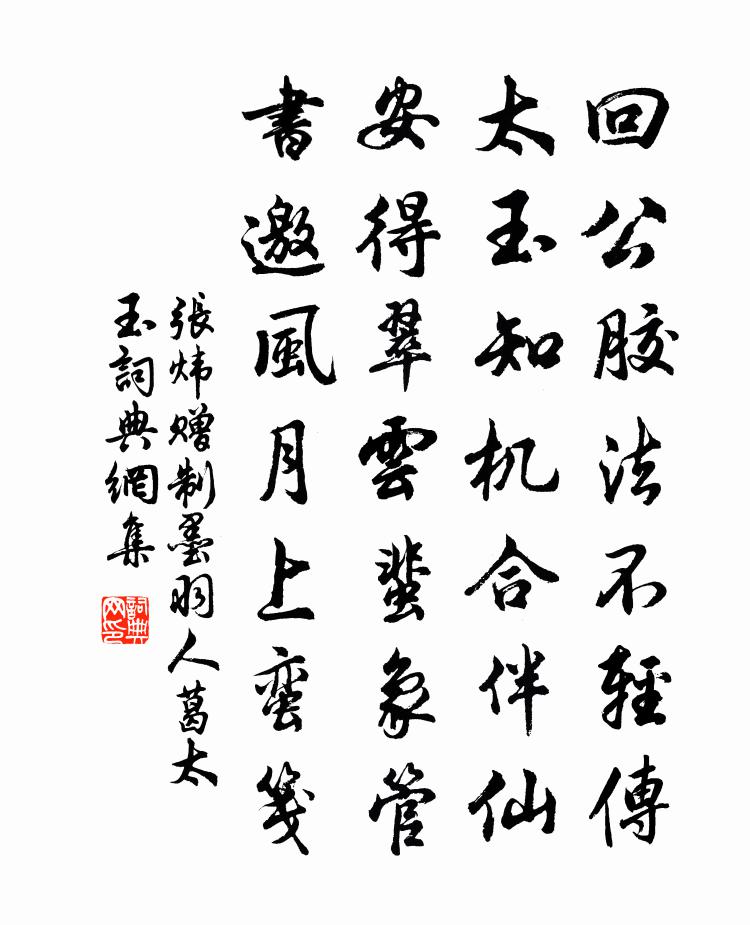 回公胶法不輕傳
太玉知机合伴仙
安得翠雲蜚象管
書邀風月上蛮箋
張炜贈制墨羽人葛太
玉詞典網集
詞典
网印